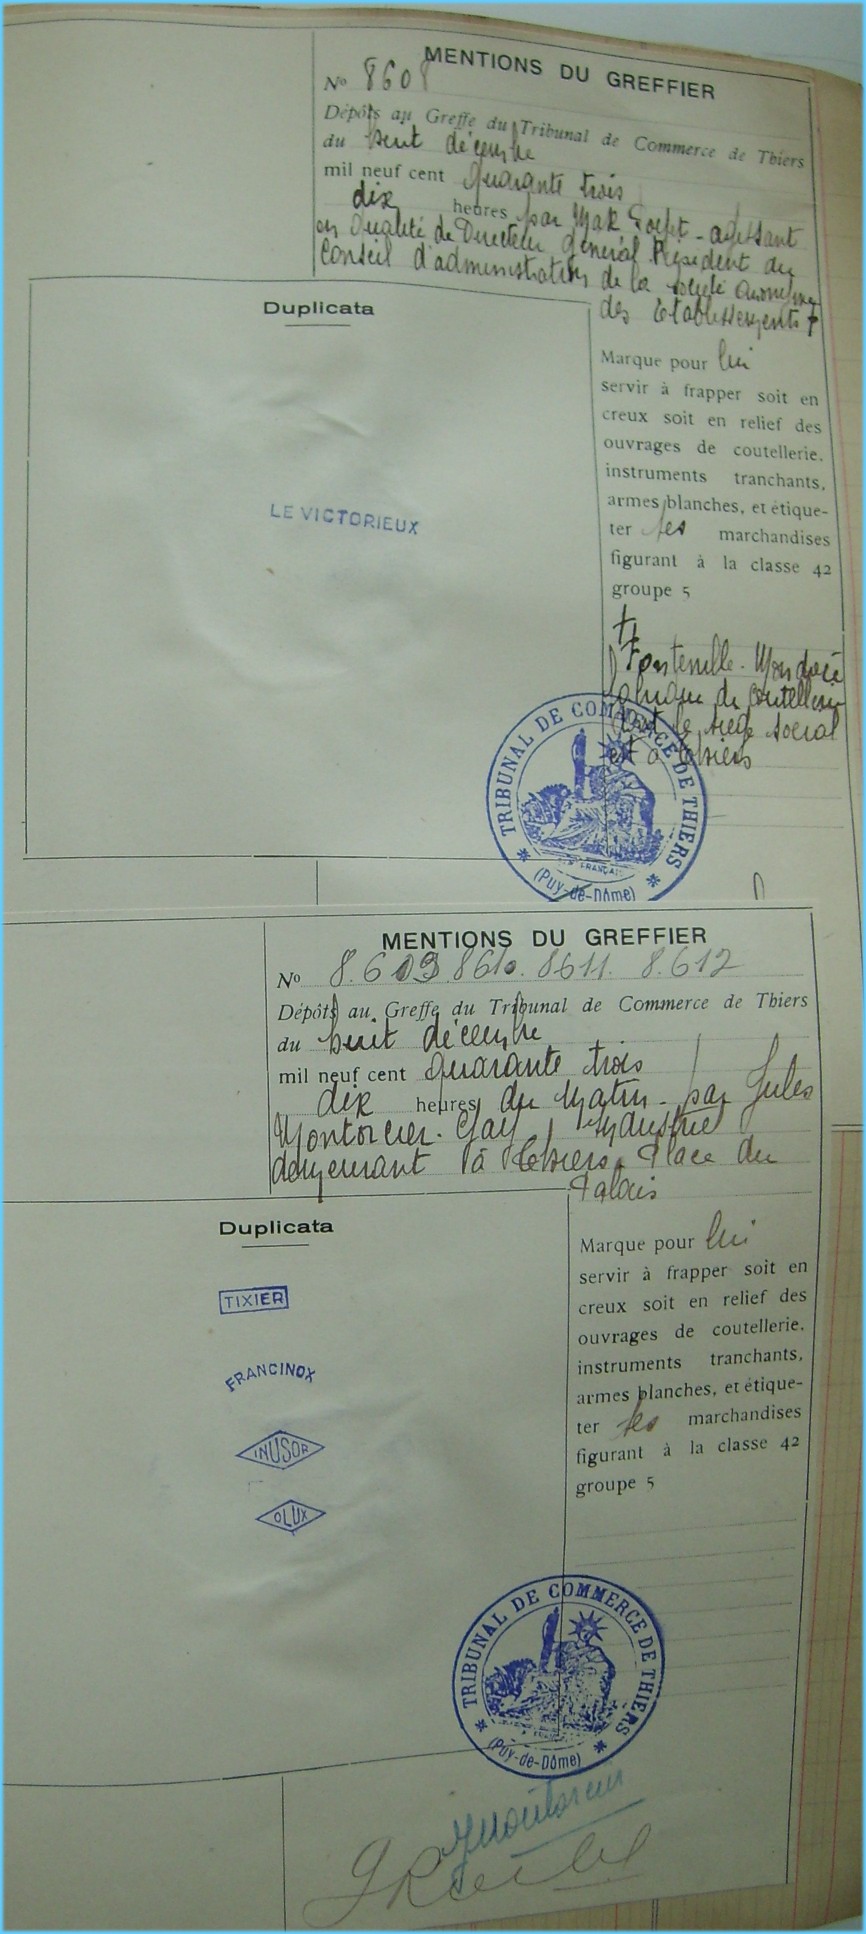 MENTIONS DU GREFFIER
No 8608
Dépôts au Greffe du Tribunal de Commerce de Thiers
du huit décembre
mil neuf cent quarante trois
dix heures par agissant
en qualité de Directeur général Président du
Conseil d'administration de la société anonyme
des Etablissements
Duplicata
LE VICTORIEUX
Marque pour lui
servir à frapper soit en
creux soit en relief des
ouvrages de coutellerie,
instruments tranchants,
armes blanches, et étique-
ter les marchandises
figurant à la classe 42
groupe 5
Fontenille-
fabrique de coutellerie
dont le siège social
est à Thiers
TRIBUNAL DE COMMERCE DE THIERS
(Puy-de-Dôme)
MENTIONS DU GREFFIER
No 8.609 8610. 8611. 8.612
Dépôts au Greffe du Tribunal de Commerce de Thiers
du huit décembre
mil neuf cent quarante trois
dix heures du matin - par Jules
Montorcier-Gay, Industriel
demeurant à Thiers, Place du
Palais
Duplicata
TIXIER
FRANCINOX
INUSOR
OLUX
Marque pour lui
servir à frapper soit en
creux soit en relief des
ouvrages de coutellerie,
instruments tranchants,
armes blanches, et étique-
ter les marchandises
figurant à la classe 42
groupe 5
TRIBUNAL DE COMMERCE DE THIERS
(Puy-de-Dôme)